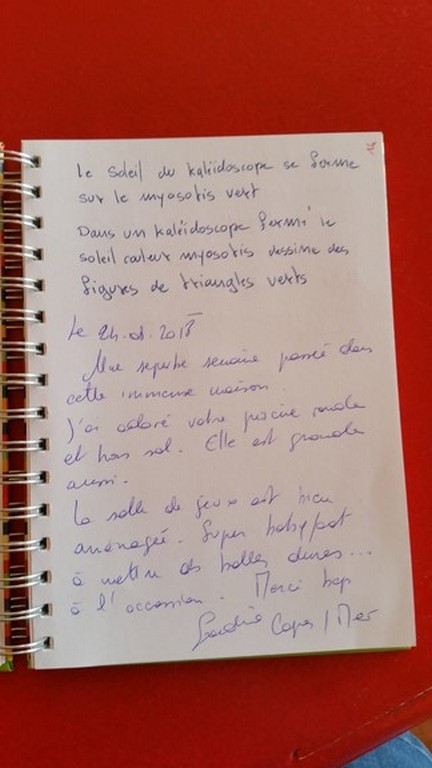 Le Soleil du kaléidoscope se ferme
sur le myosotis vert
Dans un kaléidoscope fermé le
soleil couleur myosotis dessine des
figures de triangles verts
Le 24.08.2018
Une superbe semaine passée dans
cette immense maison.
J'ai adoré votre piscine ronde
et hors sol. Elle est grande
aussi.
La salle de jeux est bien
aménagée. Super babyfoot
à mettre des balles dures...
à l'occasion. Merci bcp
Sandrine